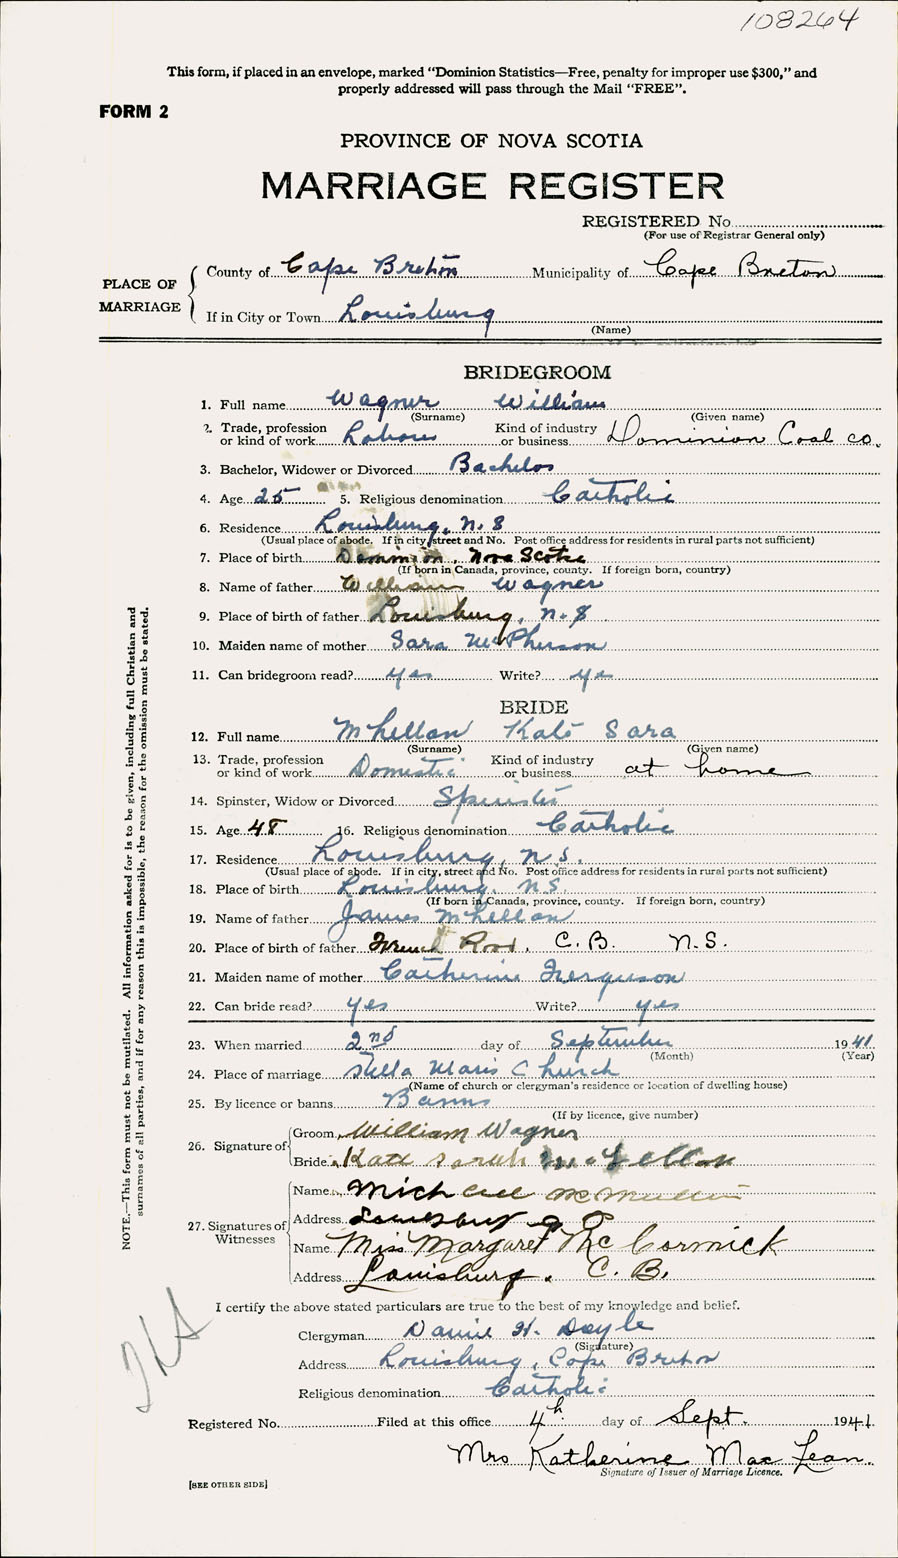 108264
This form, if placed in an envelope, marked "Dominion Statistics—Free, penalty for improper use $300," and
properly addressed will pass through the Mail "FREE".
FORM 2
PROVINCE OF NOVA SCOTIA
MARRIAGE REGISTER
REGISTERED No.
(For use of Registrar General only)
PLACE OF MARRIAGE
County of Cape Breton Municipality of Cape Breton
If in City or Town Louisburg
(Name)
BRIDEGROOM
1. Full name Wagner William
(Surname) (Given name)
2. Trade, profession or kind of work Labour Kind of industry or business Dominion Coal Co.
3. Bachelor, Widower or Divorced Bachelor
4. Age 25 5. Religious denomination Catholic
6. Residence Louisburg, N.S
(Usual place of abode. If in city, street and No. Post office address for residents in rural parts not sufficient)
7. Place of birth Dominion, Nova Scotia
(If born in Canada, province, county. If foreign born, country)
8. Name of father William Wagner
9. Place of birth of father Louisburg, N.S
10. Maiden name of mother Sara McPherson
11. Can bridegroom read? yes Write? yes
BRIDE
12. Full name McLellan Kate Sara
(Surname) (Given name)
13. Trade, profession or kind of work Domestic Kind of industry or business at home
14. Spinster, Widow or Divorced Spinster
15. Age 48 16. Religious denomination Catholic
17. Residence Louisburg, N.S.
(Usual place of abode. If in city, street and No. Post office address for residents in rural parts not sufficient)
18. Place of birth Louisburg. N.S.
(If born in Canada, province, county. If foreign born, country)
19. Name of father James McLellan
20. Place of birth of father French Road, C.B. N.S.
21. Maiden name of mother Catherine Ferguson
22. Can bride read? yes Write? yes
23. When married 2nd day of September 1941
(Month) (Year)
24. Place of marriage Stella Maris Church
(Name of church or clergyman's residence or location of dwelling house)
25. By licence or banns Banns
(If by licence, give number)
26. Signature of
Groom William Wagner
Bride Kate Sarah McLellan
27. Signatures of Witnesses
Name Michael McMullin
Address
Name Miss Margaret McCormick
Address Louisburg. C.B.
I certify the above stated particulars are true to the best of my knowledge and belief.
Clergyman H. Doyle
(Signature)
Address Louisburg, Cape Breton
Religious denomination Catholic
Registered No. Filed at this office 4th day of Sept. 1941
Mrs Katherine MacLean.
Signature of Issuer of Marriage Licence.
[SEE OTHER SIDE]
NOTE.—This form must not be mutilated. All information asked for is to be given, including full Christian and
surnames of all parties, and if for any reason this is impossible, the reason for the omission must be stated.